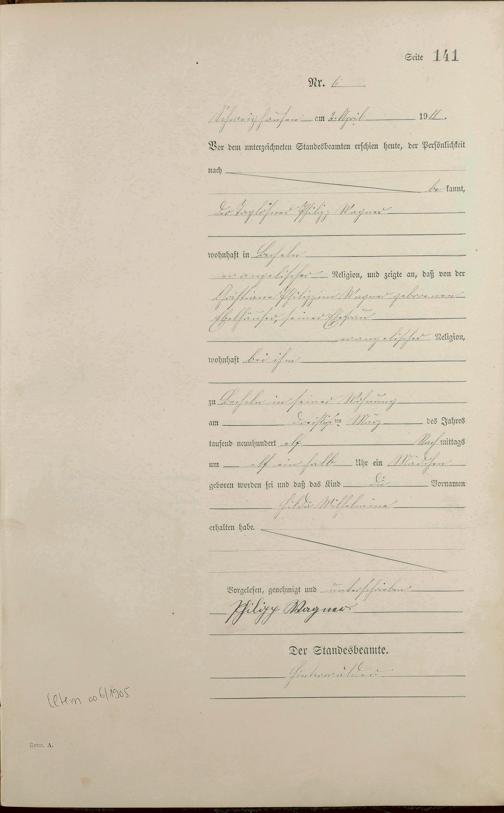 Seite 141
Nr. 6
Schweighausen am 2. April 1911.
Vor dem unterzeichneten Standesbeamten erschien heute, der Persönlichkeit
nach
be kannt,
der Taglöhner Philipp Wagner
wohnhaft in Becheln
evangelischer Religion, und zeigte an, daß von der
Christiane Philippine Wagner geborenen
seiner Ehefrau
evangelischer Religion,
wohnhaft bei ihm
zu Becheln in seiner Wohnung
am dreißigsten März des Jahres
tausend neunhundert elf Nach mittags
um elf ein halb Uhr ein Mädchen
geboren worden sei und daß das Kind die Vornamen
Hilda Wilhelmine
erhalten habe.
Vorgelesen, genehmigt und unterschrieben
Philipp Wagner
Der Standesbeamte.
Eltern 006/1905
Gen. A.